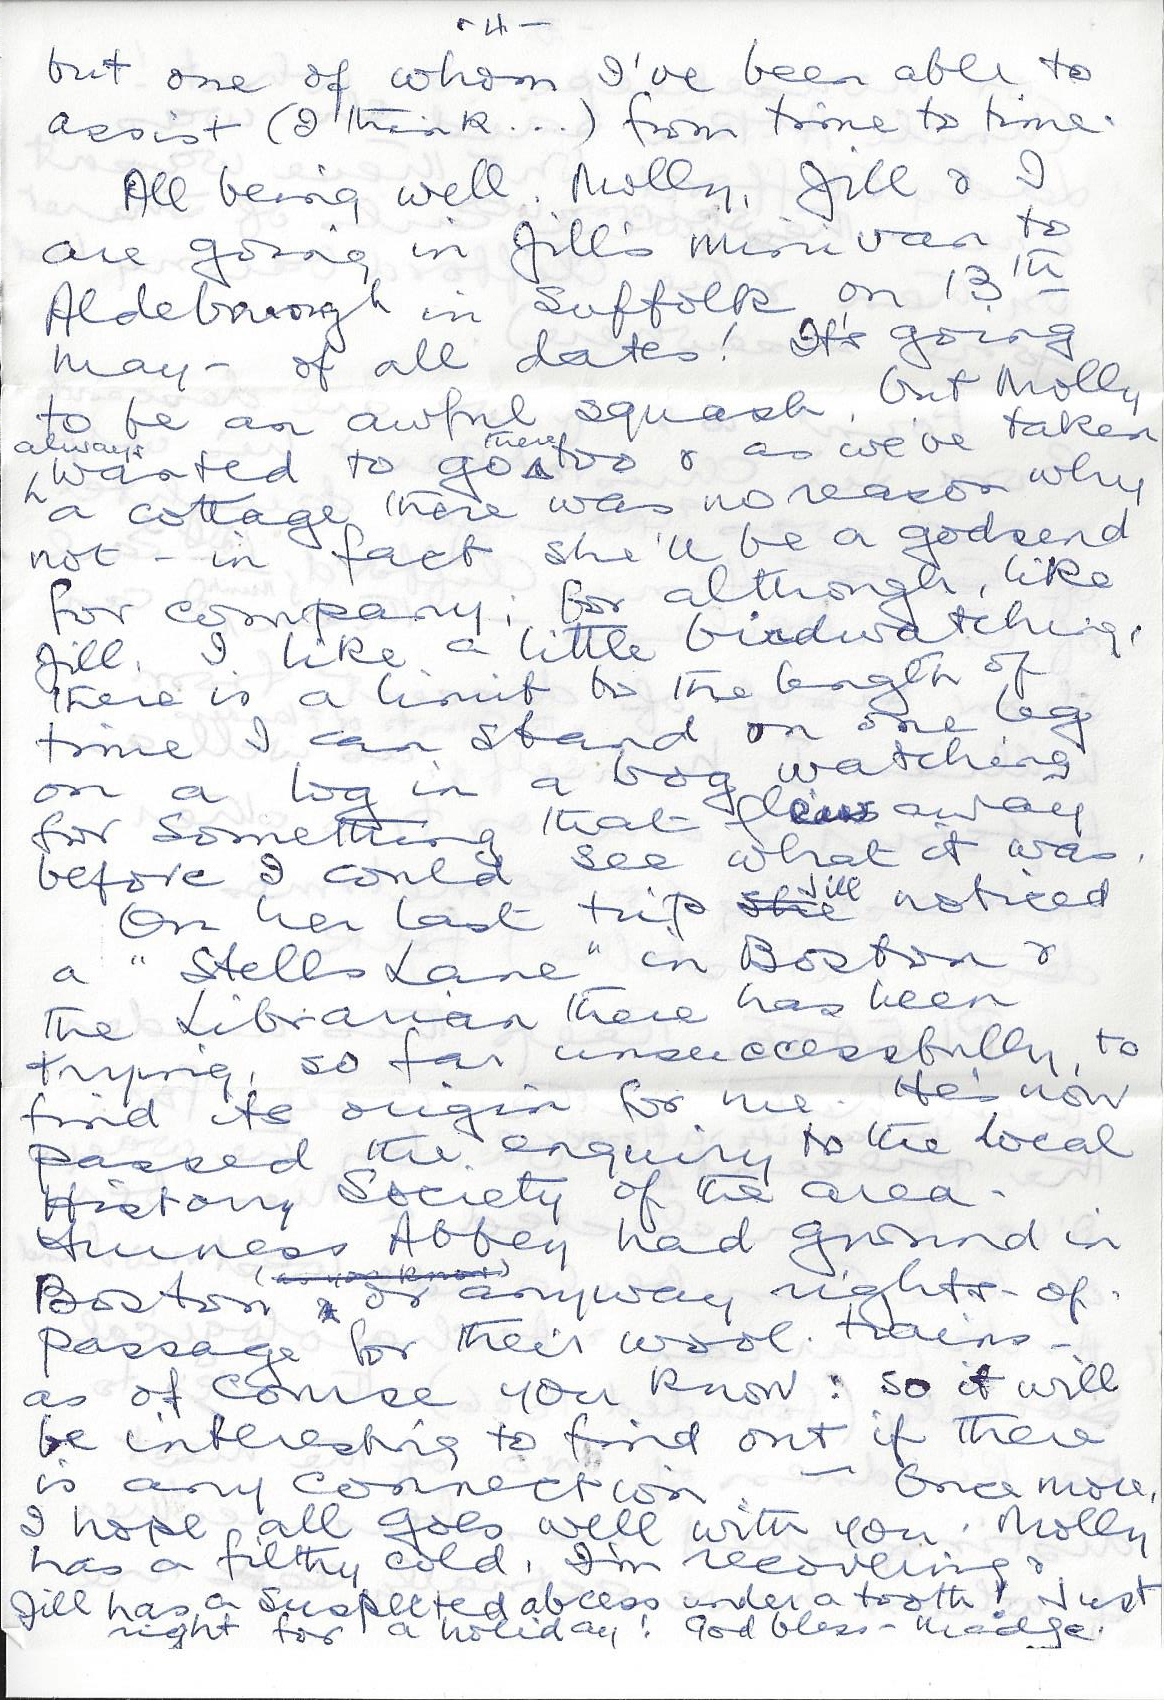 - 4 -
but one of whom I've been able to
assist (I think...) from time to time.
All being well, Molly, Jill & I
are going in Jill's minivan to
Aldeborough in Suffolk on 13th
May - of all dates! It's going
to be an awful squash, but Molly
always wanted to go there too & as we've taken
a cottage there was no reason why
not - in fact she'll be a godsend
for company; for although, like
Jill, I like a little birdwatching,
there is a limit to the length of
time I can stand on one leg
on a log in a bog watching
for something that flew away
before I could see what it was.
On her last trip she Jill noticed
a "Stells Lane" in Boston &
the Librarian there has been
trying, so far unsuccessfully, to
find its origin for me. He's now
passed the enquiry to the Local
History Society of the area.
Furness Abbey had ground in
(as you know)
Boston, or anyway rights-of-
passage for their wool trains -
as of course you know: so it will
be interesting to find out if there
is any connection. — Once more,
I hope all goes well with you. Molly
has a filthy cold, I'm recovering &
Jill has a suspected abcess under a tooth! Just
right for a holiday! God bless - Madge.